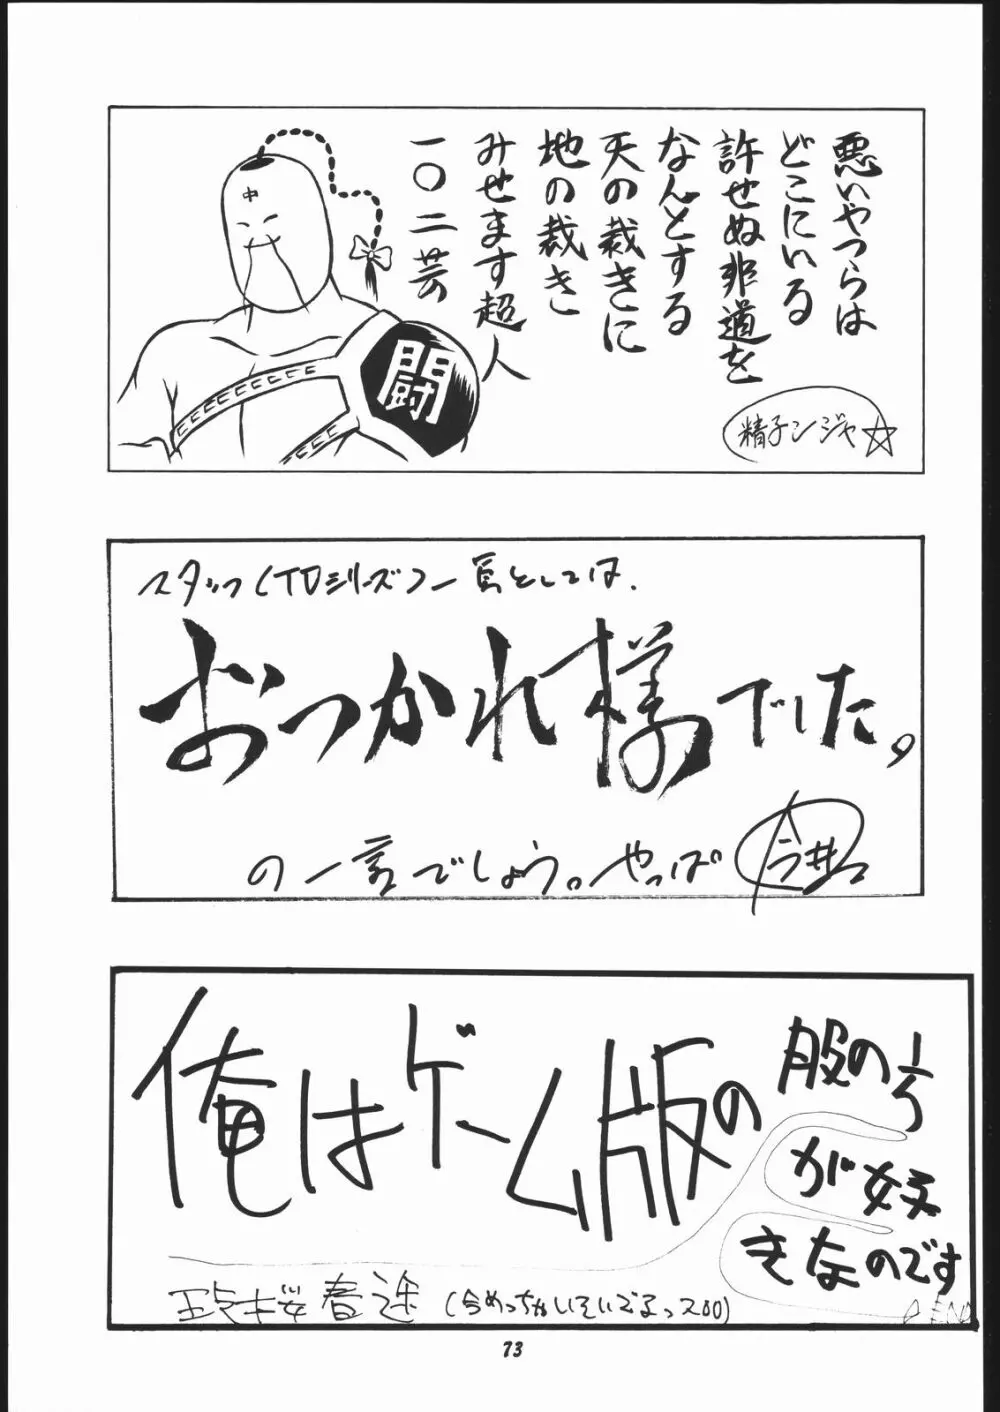 悪いやつらは
どこにいる
許せぬ非道を
なんとする
天の裁きに
地の裁き
みせます超人
一〇二芸
中
闘
精子ンジャ☆
スタッフ(TDシリーズ)一員としては、
おつかれ様でした。
の一言でしょう。やっぱ
今井
俺はゲーム版の
服の方
が好
きなのです
春途
END
73